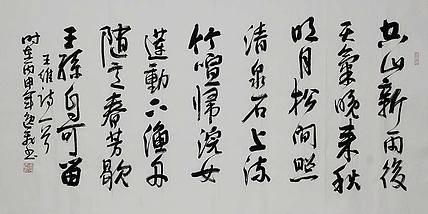 空山新雨後
天氣晚来秋
明月松间照
清泉石上流
竹喧歸浣女
蓮動下漁舟
随意春芳歇
王孫自可留
王维诗一首
时在丙申年